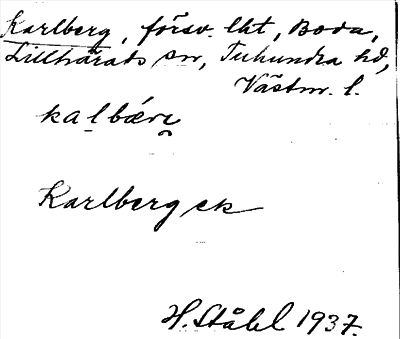 Karlberg, försv. lht, Boda,
Lillhärads sn, Tuhundra hd,
Västm. l.
kalbærɩ
Karlberg ek
H. Ståhl 1937.